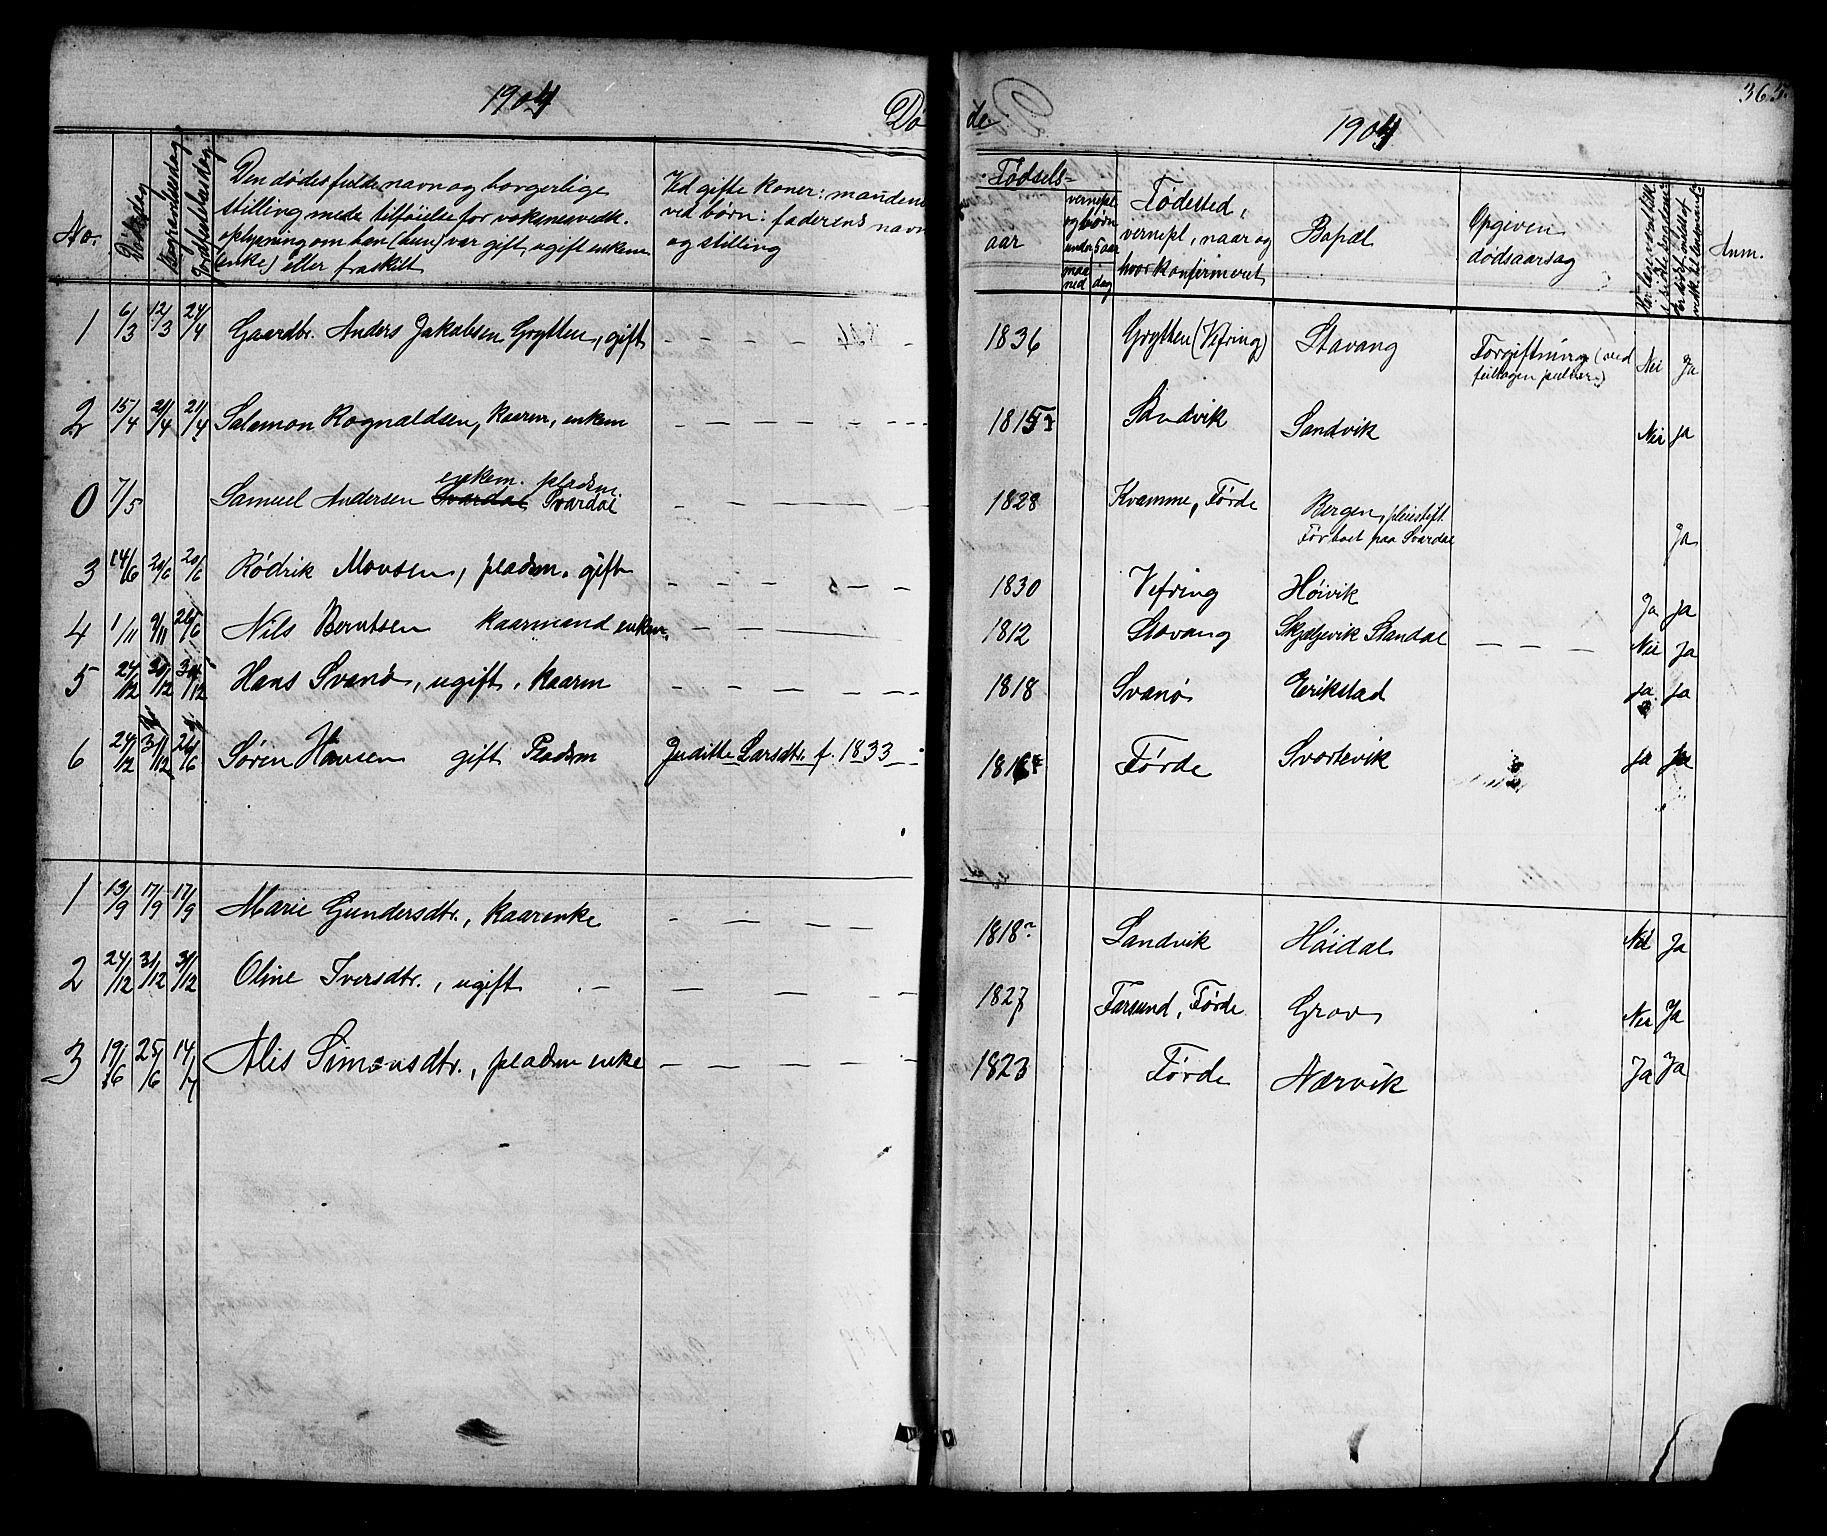 1904
Døde
1904
365.
No.
Dødsdag
Begravelsesdag
Jordfæstelsesdag
Den dødes fulde navn og borgerlige
stilling med tilføielse for voksnes vedk.
oplysning om han (hun) var gift, ugift enkem
(enke) eller fraskilt
Ved gifte koner: mandens
ved børn: faderens navn
og stilling
Fødsels-
aar
vernepl.
og børn
under 5 aar
maa
ned
dag
Fødested,
vernepl, naar og
hvor konfirmeret
Bopæl
Opgiven
dødsaarsag
Anm.
1 6/3 12/3 24/4 Gaardbr. Anders Jakobsen Grytten, gift 1836 Grytten (Vefring) Stavang Forgiftning (ved Nei Ja
feiltagen pulver)
2 15/4 21/4 21/4 Salomon Rognaldsen, kaarm, enkem 1815 Sandvik Sandvik Nei Ja
enkem. pladsm.
0 7/5 Samuel Andersen Svardal Svardal 1828 Kvamme, Førde Bergen, pleiestift. Ja
Før boet paa Svardal
3 14/6 20/6 20/6 Rødrik Monsen, pladsm. gift 1830 Vefring Høivik Ja Ja
4 1/11 9/11 26/6 Nils Berntsen kaarmand enkem. 1812 Stavang Skjeljevik Standal Nei Ja
5 24/12 31/12 31/12 Hans Svanø, ugift, kaarm 1818 Svanø Erikstad Ja Ja
6 24/12 31/12 26/6 Søren Hansen gift Pladsm Juditte Larsdtr. f. 1833 Førde Svortevik Ja Ja
1 13/9 17/9 17/9 Marie Gundersdtr., kaarenke 1818? Sandvik Høidal Nei Ja
2 24/12 31/12 31/12 Oline Iversdtr., ugift 1827 Farsund, Førde Grov Nei Ja
3 19/6 25/6 14/7 Alis Simonsdtr., pladsm enke 1823 Førde Nærvik Ja Ja